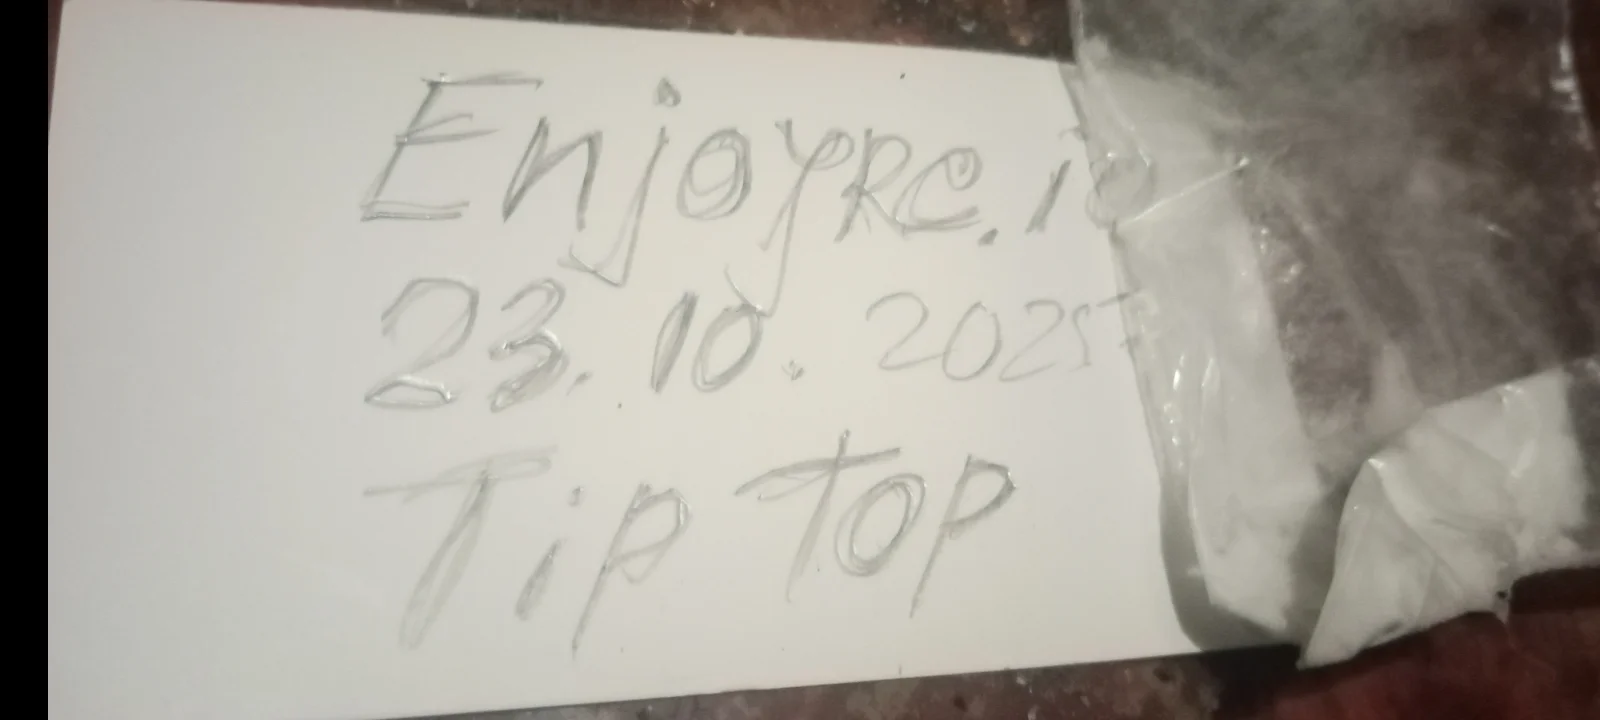 EnjoyRC.io
23.10.2025
Tip top